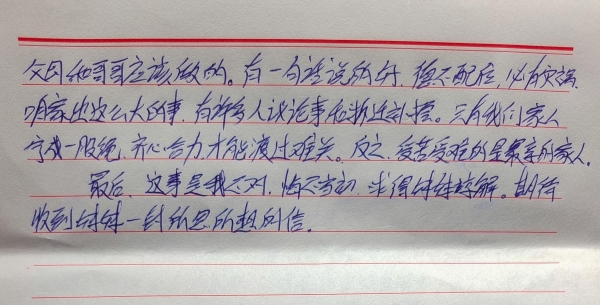 父因和哥哥应该做的。有一句话说的好，德不配位，必有灾祸，
咱家出这么大的事，有许多人议论事和渐近打搅。只有我们家人
宁成一股绳，齐心合力，才能渡过难关。反之，受苦受难的是最亲的家人。
最后，这事是我不对，悔不当初，求得妹妹谅解。期待
收到妹妹一封所思所想的信。